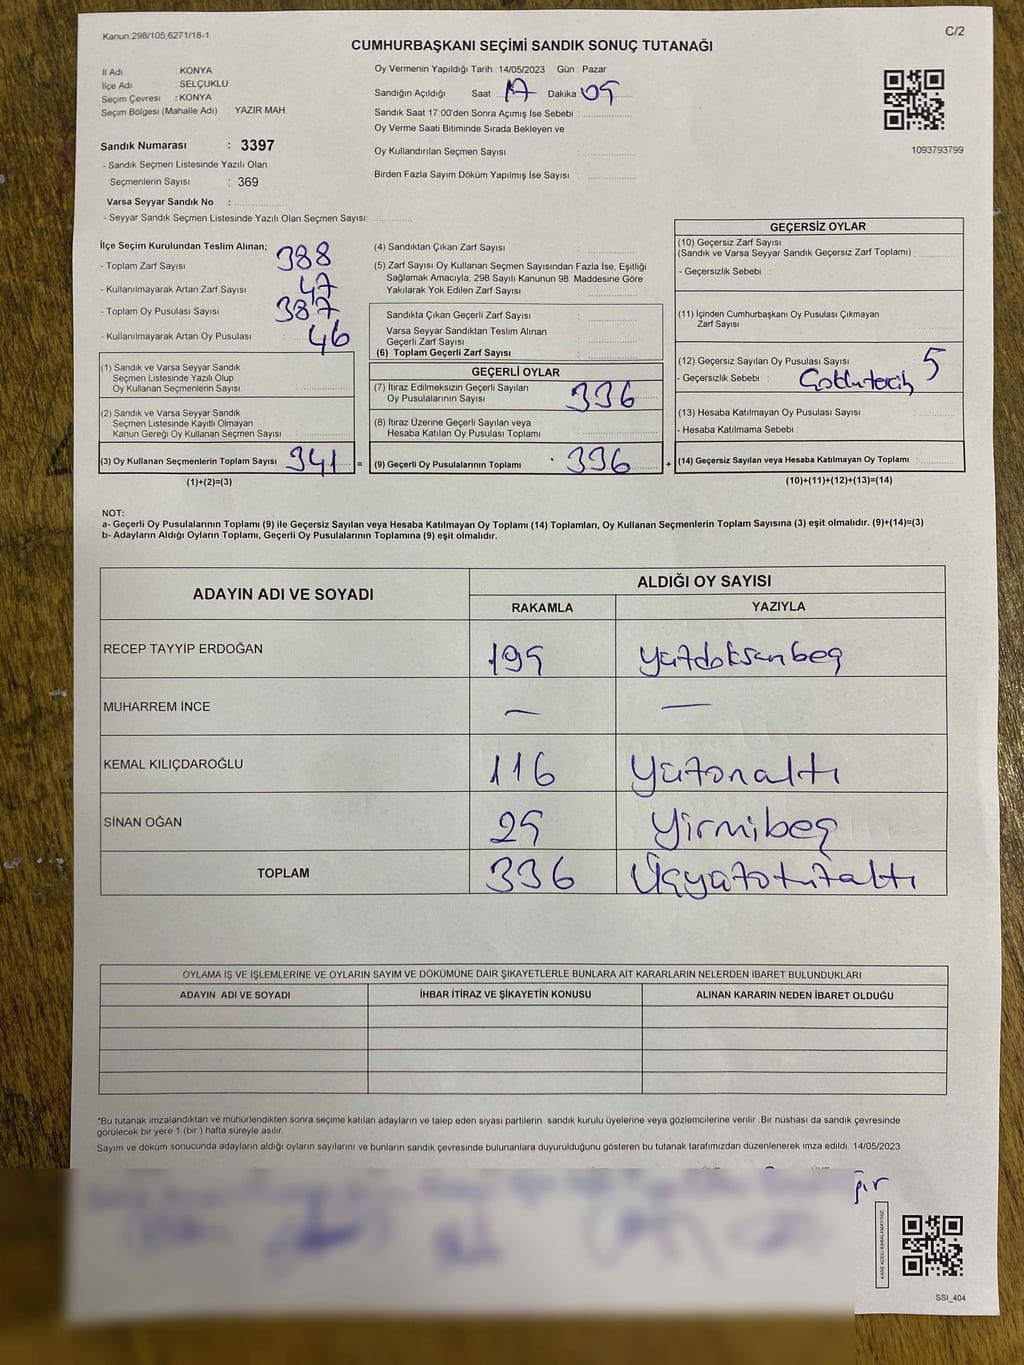 Kanun:298/105;6271/18-1
C/2
CUMHURBAŞKANI SEÇİMİ SANDIK SONUÇ TUTANAĞI
İl Adı KONYA
İlçe Adı : SELÇUKLU
Seçim Çevresi : KONYA
Seçim Bölgesi (Mahalle Adı) YAZIR MAH.
Oy Vermenin Yapıldığı Tarih : 14/05/2023 Gün : Pazar
Sandığın Açıldığı Saat 17 Dakika 05
Sandık Saat 17:00'den Sonra Açımış İse Sebebi :
Oy Verme Saati Bitiminde Sırada Bekleyen ve
Oy Kullandırılan Seçmen Sayısı :
Birden Fazla Sayım Döküm Yapılmış İse Sayısı :
1093793799
Sandık Numarası : 3397
- Sandık Seçmen Listesinde Yazılı Olan
Seçmenlerin Sayısı : 369
Varsa Seyyar Sandık No :
- Seyyar Sandık Seçmen Listesinde Yazılı Olan Seçmen Sayısı:
İlçe Seçim Kurulundan Teslim Alınan;
- Toplam Zarf Sayısı 388
- Kullanılmayarak Artan Zarf Sayısı 47
- Toplam Oy Pusulası Sayısı 387
- Kullanılmayarak Artan Oy Pusulası 46
(1) Sandık ve Varsa Seyyar Sandık
Seçmen Listesinde Yazılı Olup
Oy Kullanan Seçmenlerin Sayısı :
(2) Sandık ve Varsa Seyyar Sandık
Seçmen Listesinde Kayıtlı Olmayan
Kanun Gereği Oy Kullanan Seçmen Sayısı :
(3) Oy Kullanan Seçmenlerin Toplam Sayısı 341 =
(1)+(2)=(3)
(4) Sandıktan Çıkan Zarf Sayısı :
(5) Zarf Sayısı Oy Kullanan Seçmen Sayısından Fazla İse, Eşitliği
Sağlamak Amacıyla; 298 Sayılı Kanunun 98. Maddesine Göre
Yakılarak Yok Edilen Zarf Sayısı :
Sandıkta Çıkan Geçerli Zarf Sayısı :
Varsa Seyyar Sandıktan Teslim Alınan
Geçerli Zarf Sayısı :
(6) Toplam Geçerli Zarf Sayısı :
GEÇERLİ OYLAR
(7) İtiraz Edilmeksizin Geçerli Sayılan
Oy Pusulalarının Sayısı 336
(8) İtiraz Üzerine Geçerli Sayılan veya
Hesaba Katılan Oy Pusulası Toplamı :
(9) Geçerli Oy Pusulalarının Toplamı 336 +
GEÇERSİZ OYLAR
(10) Geçersiz Zarf Sayısı
(Sandık ve Varsa Seyyar Sandık Geçersiz Zarf Toplamı)
- Geçersizlik Sebebi :
(11) İçinden Cumhurbaşkanı Oy Pusulası Çıkmayan
Zarf Sayısı :
(12) Geçersiz Sayılan Oy Pusulası Sayısı 5
- Geçersizlik Sebebi :
(13) Hesaba Katılmayan Oy Pusulası Sayısı :
- Hesaba Katılmama Sebebi :
(14) Geçersiz Sayılan veya Hesaba Katılmayan Oy Toplamı :
(10)+(11)+(12)+(13)=(14)
NOT:
a- Geçerli Oy Pusulalarının Toplamı (9) ile Geçersiz Sayılan veya Hesaba Katılmayan Oy Toplamı (14) Toplamları, Oy Kullanan Seçmenlerin Toplam Sayısına (3) eşit olmalıdır. (9)+(14)=(3)
b- Adayların Aldığı Oyların Toplamı, Geçerli Oy Pusulalarının Toplamına (9) eşit olmalıdır.
ADAYIN ADI VE SOYADI ALDIĞI OY SAYISI
RAKAMLA YAZIYLA
RECEP TAYYİP ERDOĞAN 195 yüzdoksanbeş
MUHARREM İNCE — —
KEMAL KILIÇDAROĞLU 116 yüzonaltı
SİNAN OĞAN 25 yirmibeş
TOPLAM 336 Üçyüzotuzaltı
OYLAMA İŞ VE İŞLEMLERİNE VE OYLARIN SAYIM VE DÖKÜMÜNE DAİR ŞİKAYETLERLE BUNLARA AİT KARARLARIN NELERDEN İBARET BULUNDUKLARI
ADAYIN ADI VE SOYADI İHBAR İTİRAZ VE ŞİKAYETİN KONUSU ALINAN KARARIN NEDEN İBARET OLDUĞU
*Bu tutanak imzalandıktan ve mühürlendikten sonra seçime katılan adayların ve talep eden siyasi partilerin sandık kurulu üyelerine veya gözlemcilerine verilir. Bir nüshası da sandık çevresinde
görülecek bir yere 1 (bir ) hafta süreyle asılır.
Sayım ve döküm sonucunda adayların aldığı oyların sayılarını ve bunların sandık çevresinde bulunanlara duyurulduğunu gösteren bu tutanak tarafımızdan düzenlenerek imza edildi. 14/05/2023
KARE KODU KARALAMAYINIZ!
SSI_404